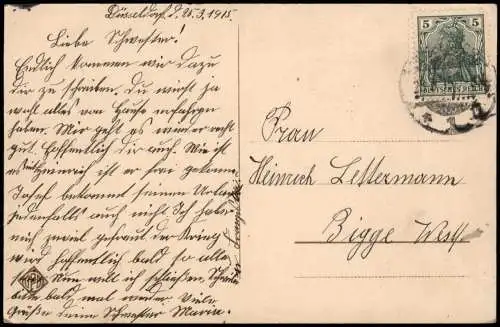 Düsseldorf, d. 25.3.1915
Liebe Schwester!
Endlich kommen wir dazu
dir zu schreiben. Du wirst ja
wohl alles von Hause erfahren
haben. Mir geht es wieder recht
gut. Hoffentlich dir auch. Wie ist
es mit Heinrich ist er frei gekomm
Josef bekommt seinen Urlau
jedenfalls auch nicht Ich hab
mich zuviel gefreut der Krieg
wird hoffentlich bald so alle
Nun will ich schließen, Schreibe
bitte bald mal wieder Viele
Grüße deine Schwester Maria.
5 5
DEUTSCHES REICH
Frau
Heinrich Lettermann
Bigge Westf.